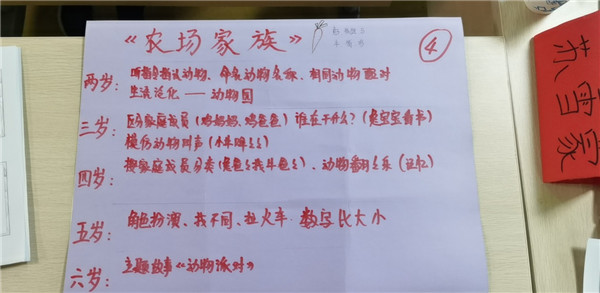 《农场家族》
4
两岁: 听指令指认动物、命名动物名称、相同动物配对
生活泛化——动物园
三岁: 区分家庭成员(鸡妈妈、鸡爸爸)谁在干什么?(鹿宝宝看书)
模仿动物叫声(小羊咩咩)
四岁: 按家庭成员分类(鹿爸爸找牛爸爸)、动物翻翻乐(记忆)
五岁: 角色扮演、找不同、扯火车 数字比大小
六岁: 主题故事《动物派对》
苏雷家